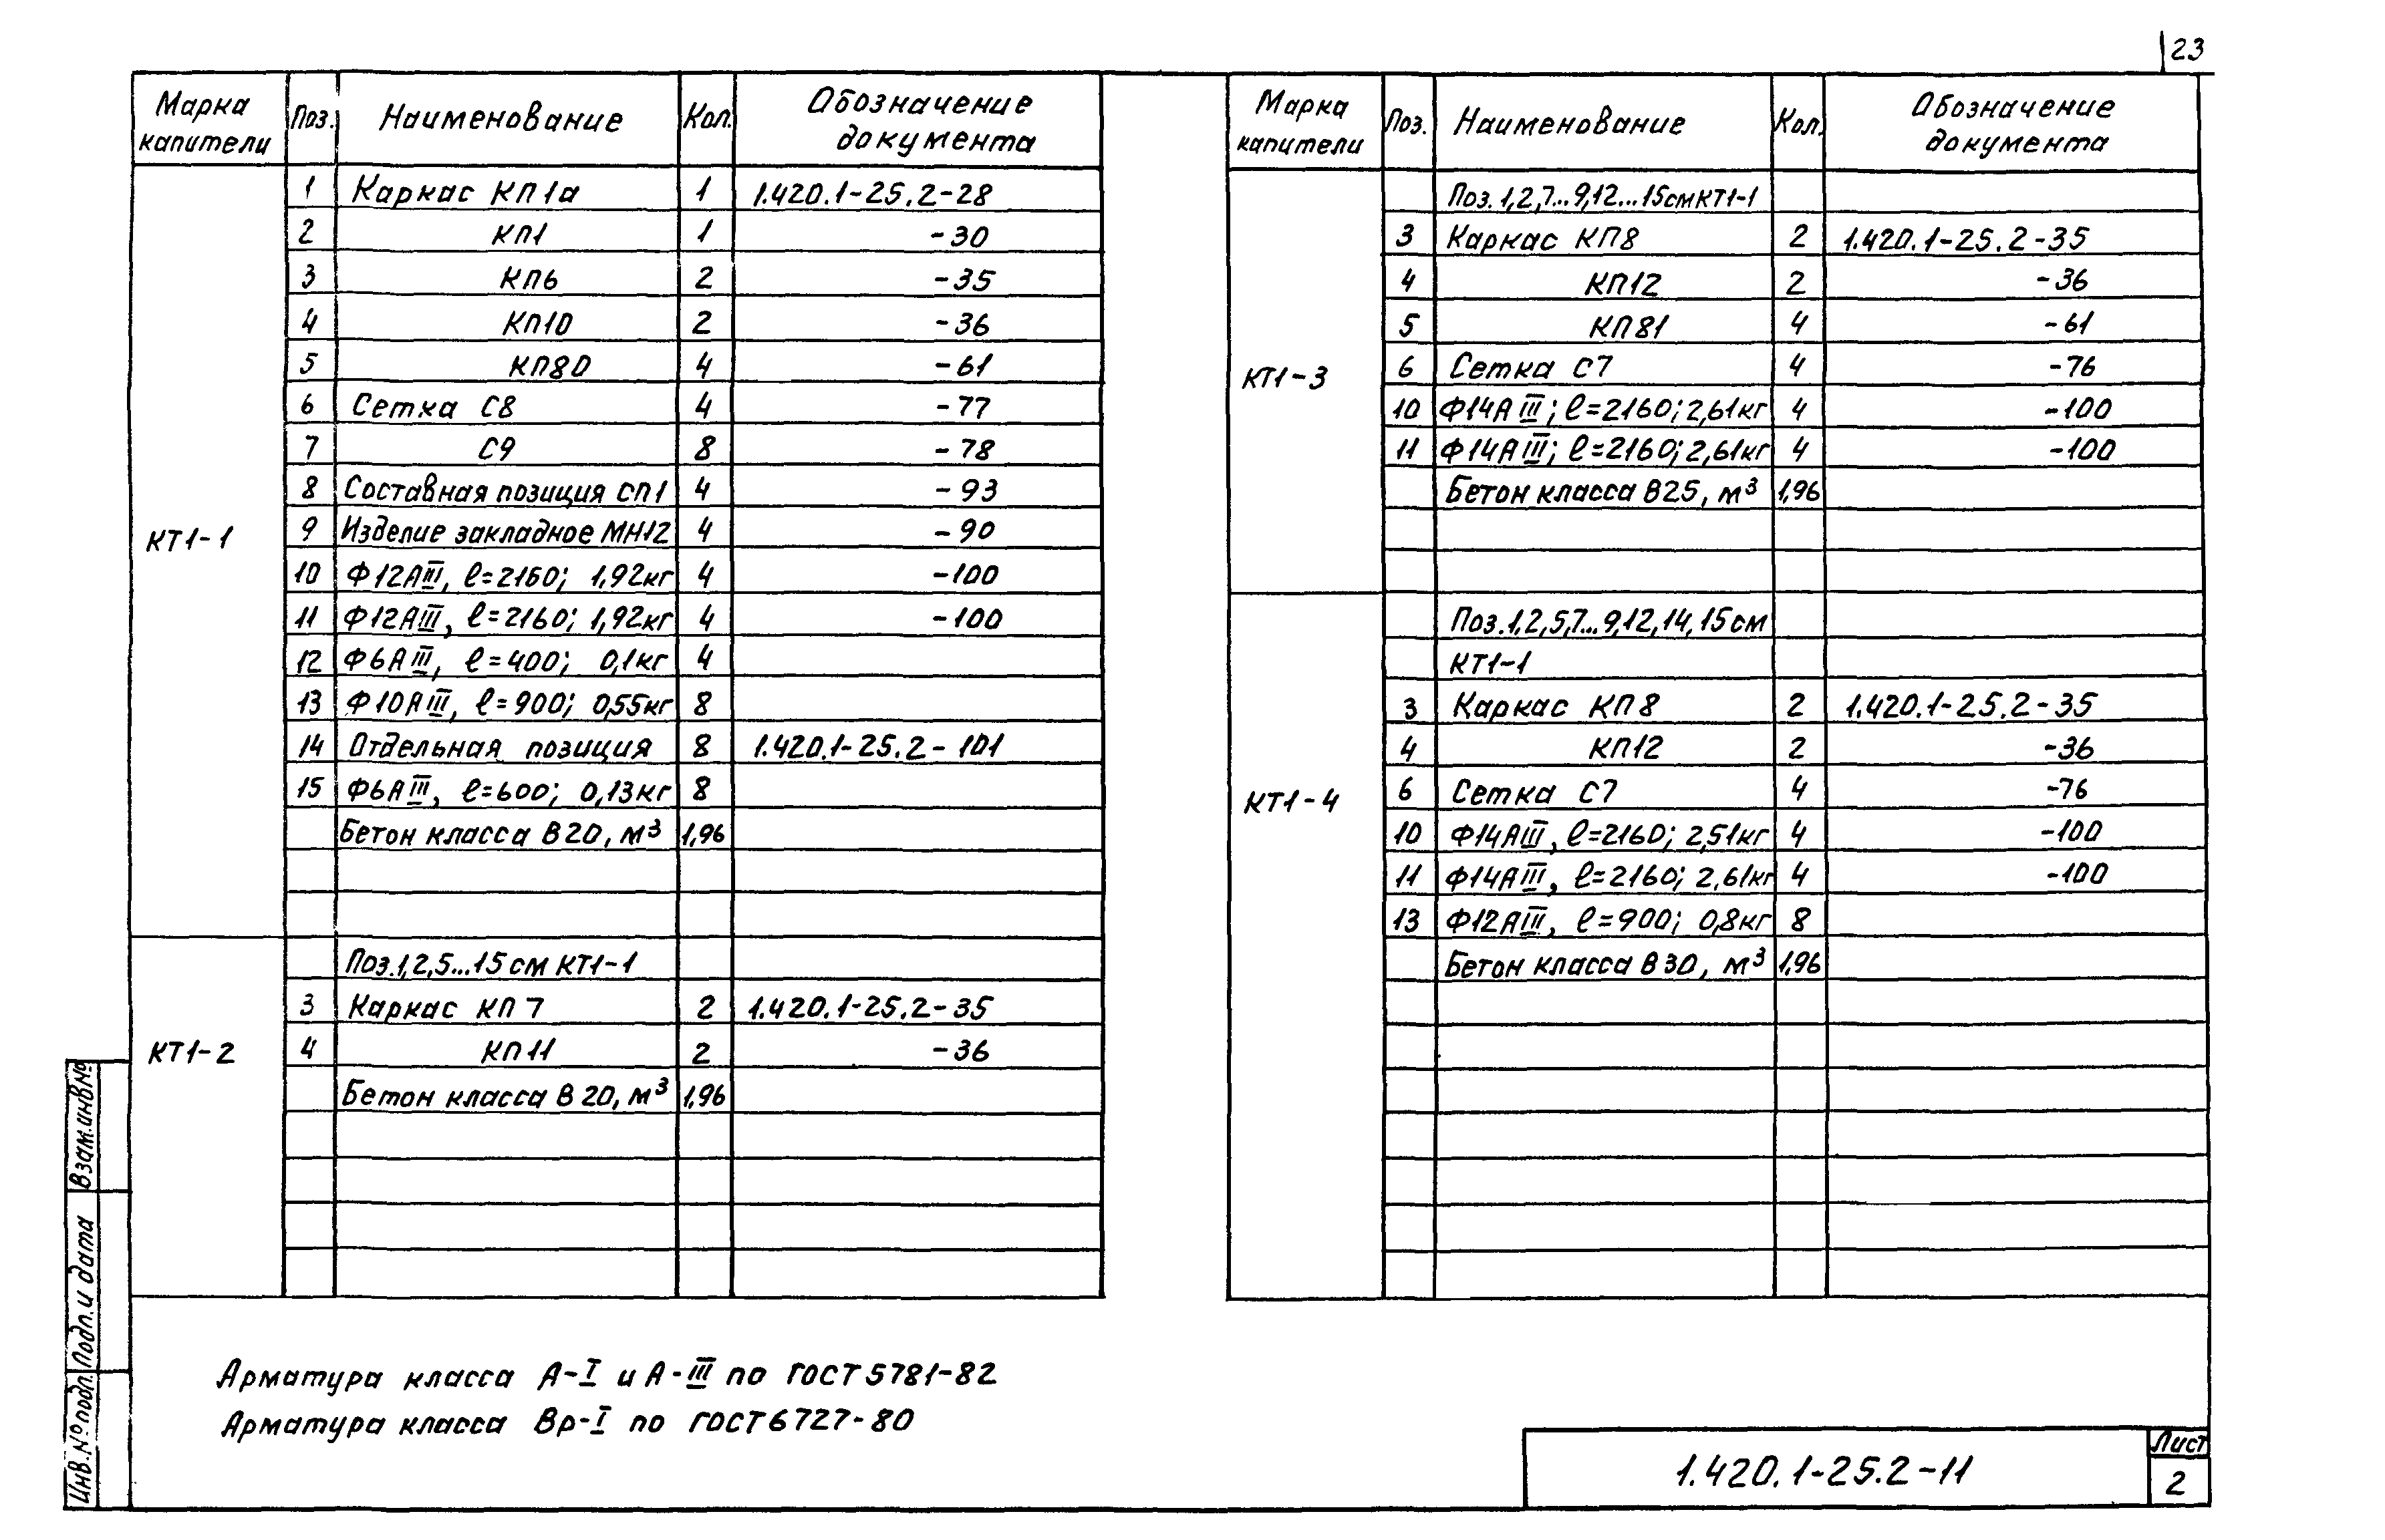 23
Марка капители Поз. Наименование Кол. Обозначение документа
КТ1-1
1 Каркас КП1а 1 1.420.1-25.2-28
2 КП1 1 -30
3 КП6 2 -35
4 КП10 2 -36
5 КП80 4 -61
6 Сетка С8 4 -77
7 С9 8 -78
8 Составная позиция СП1 4 -93
9 Изделие закладное МН12 4 -90
10 Ф12АIII, ℓ=2160; 1,92кг 4 -100
11 Ф12АIII, ℓ=2160; 1,92кг 4 -100
12 Ф6АIII, ℓ=400; 0,1кг 4
13 Ф10АIII, ℓ=900; 0,55кг 8
14 Отдельная позиция 8 1.420.1-25.2-101
15 Ф6АIII, ℓ=600; 0,13кг 8
Бетон класса В20, м³ 1,96
КТ1-2
Поз.1,2,5...15 см КТ1-1
3 Каркас КП7 2 1.420.1-25.2-35
4 КП11 2 -36
Бетон класса В20, м³ 1,96
Марка капители Поз. Наименование Кол. Обозначение документа
КТ1-3
Поз.1,2,7...9,12...15см КТ1-1
3 Каркас КП8 2 1.420.1-25.2-35
4 КП12 2 -36
5 КП81 4 -61
6 Сетка С7 4 -76
10 Ф14АIII; ℓ=2160; 2,61кг 4 -100
11 Ф14АIII; ℓ=2160; 2,61кг 4 -100
Бетон класса В25, м³ 1,96
КТ1-4
Поз.1,2,5,7...9,12,14,15см
КТ1-1
3 Каркас КП8 2 1.420.1-25.2-35
4 КП12 2 -36
6 Сетка С7 4 -76
10 Ф14АIII, ℓ=2160; 2,51кг 4 -100
11 Ф14АIII, ℓ=2160; 2,61кг 4 -100
13 Ф12АIII, ℓ=900; 0,8кг 8
Бетон класса В30, м³ 1,96
Арматура класса А-I и А-III по ГОСТ 5781-82
Арматура класса Вр-I по ГОСТ 6727-80
Взам.инв№
Подп.и дата
Инв.№подп.
1.420.1-25.2-11
Лист
2